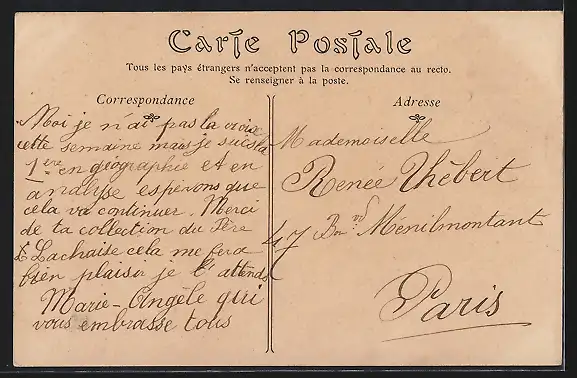 Carte Postale
Tous les pays étrangers n'acceptent pas la correspondance au recto.
Se renseigner à la poste.
Correspondance
Moi je n'ai pas la croix
cette semaine mais je suis la
1ère en géographie et en
analyse espérons que
cela va continuer. Merci
de ta collection du Père
Lachaise cela me fera
bien plaisir je t'attends
Marie-Angèle qui
vous embrasse tous
Adresse
Mademoiselle
Renée Thébert
47 Bould Ménilmontant
Paris